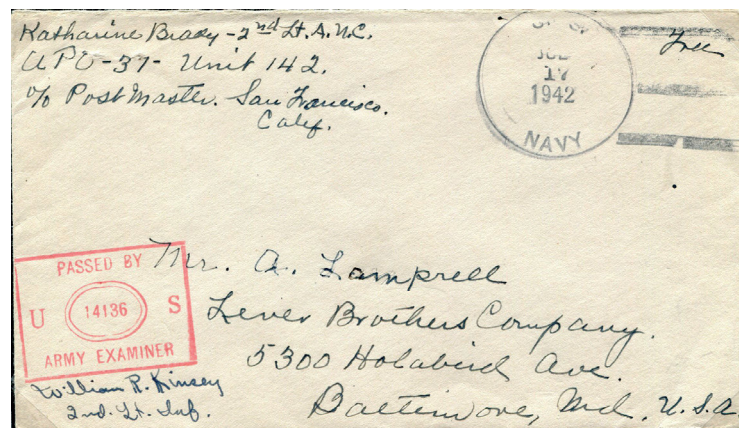 Katharine Brady - 2nd Lt. A.N.C.
APO - 37 - Unit 142.
c/o PostMaster. San Francisco.
Calif.
Free
JUL
17
1942
NAVY
PASSED BY
U 14136 S
ARMY EXAMINER
William R. Kinsey
2nd. Lt. Inf.
Mr. A. Lamprell
Lever Brothers Company.
5300 Holabird Ave.
Baltimore, Md. U.S.A